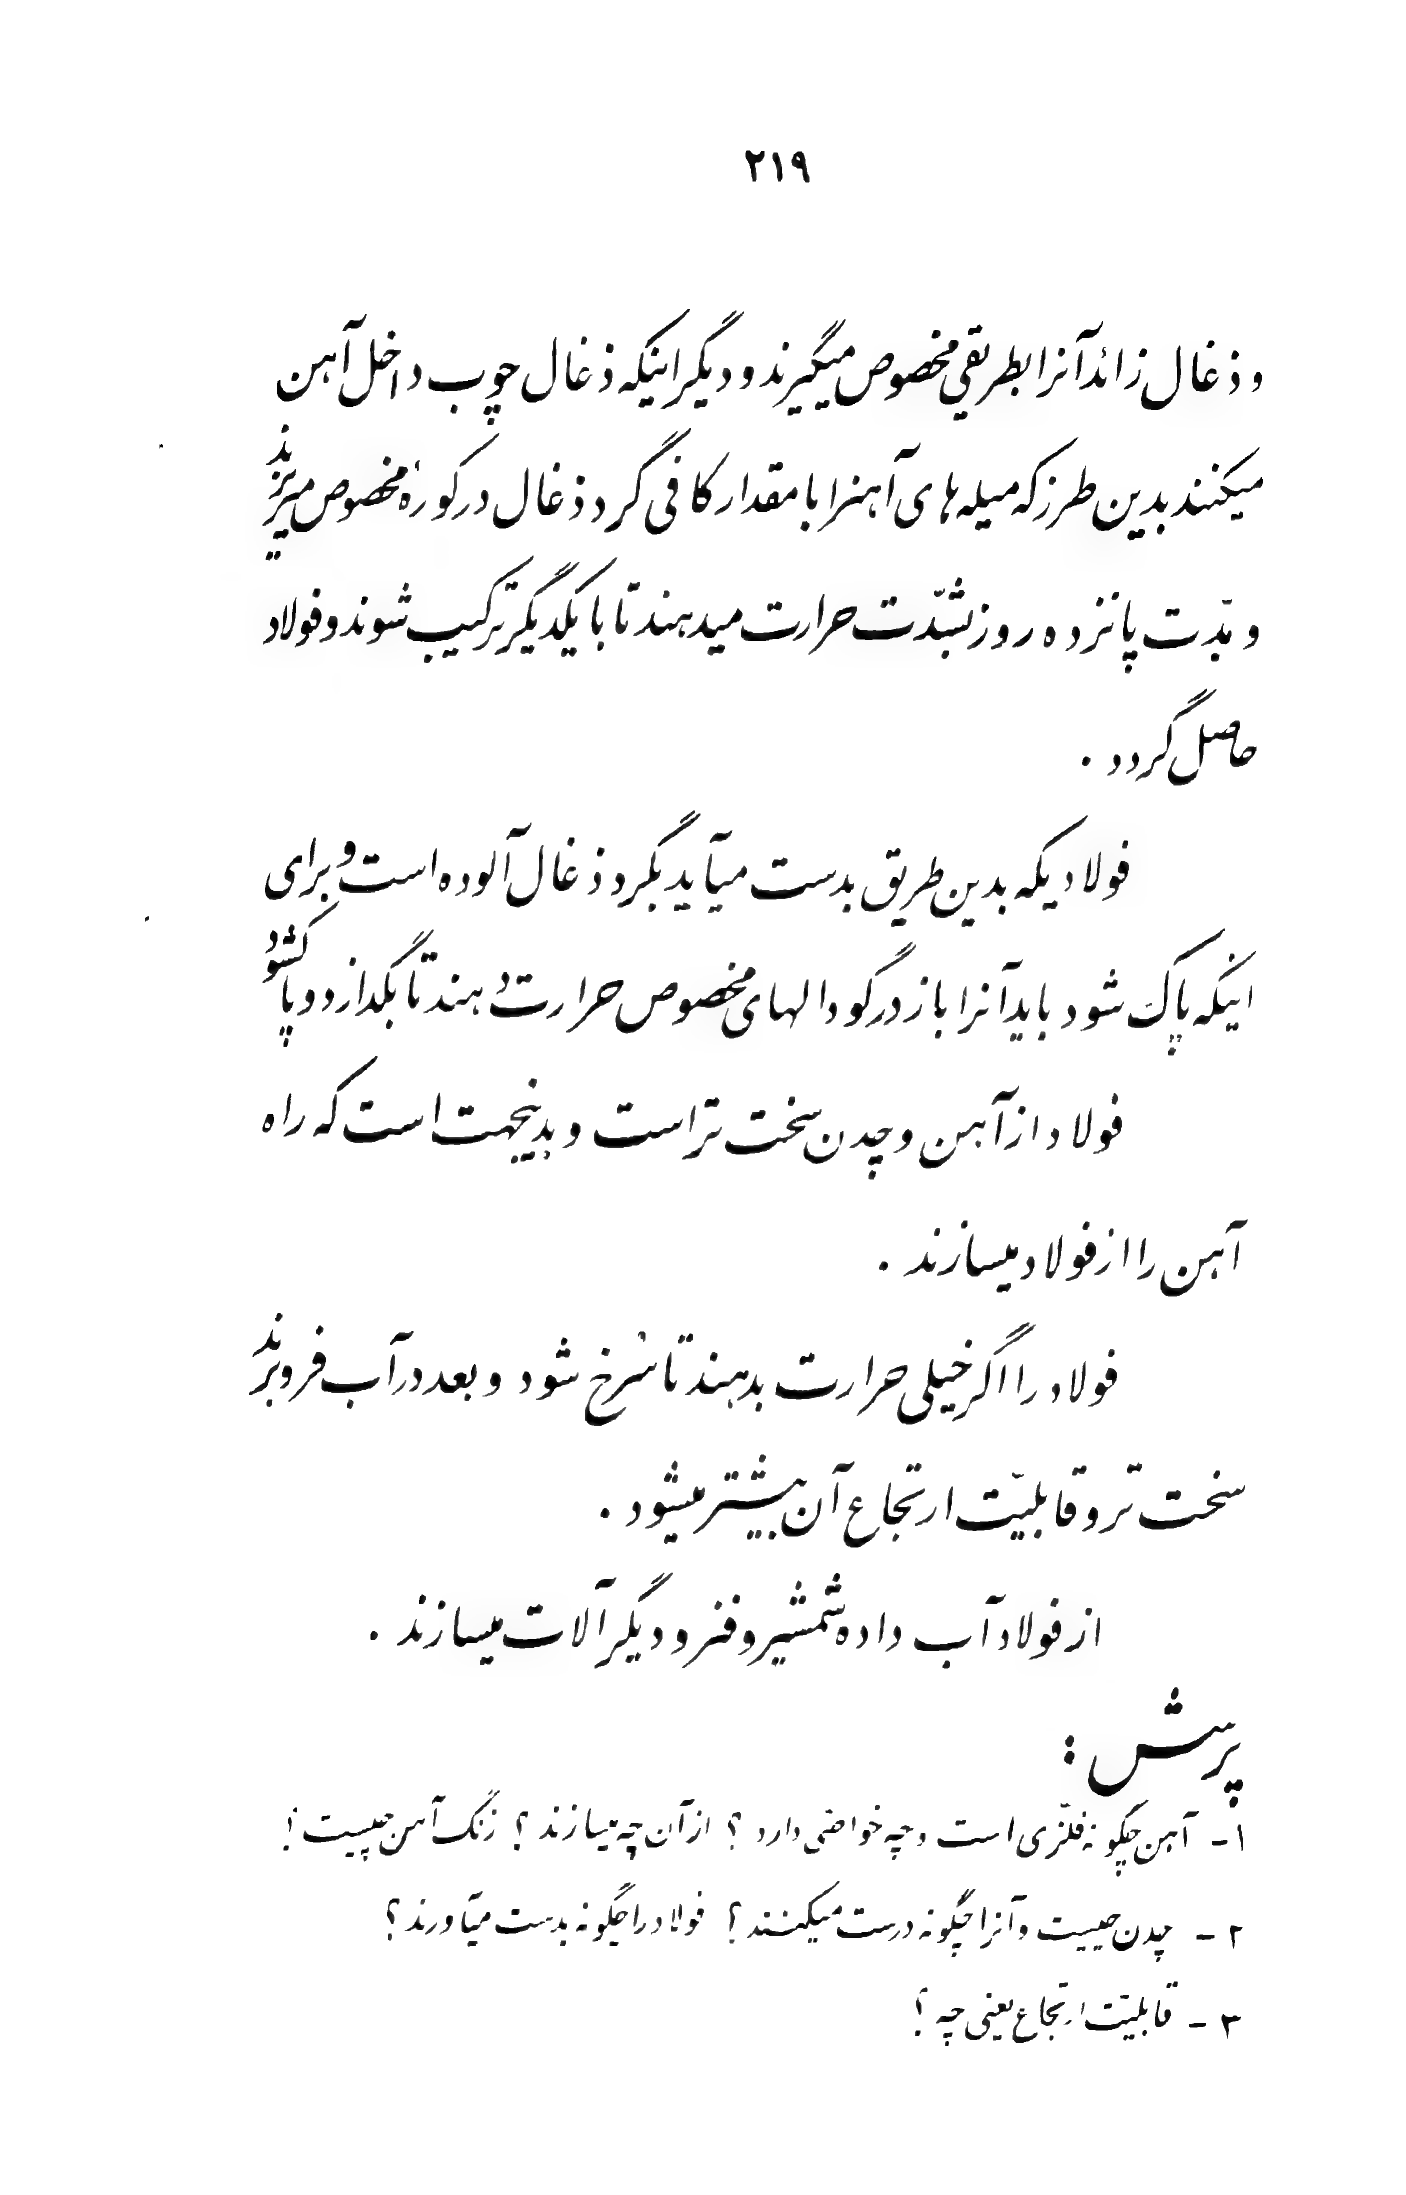 ۲۱۹
و ذغال زائد آنرا بطریقی مخصوص میگیرند و دیگر اینکه ذغال چوب داخل آهن
میکنند بدین طرز که میله های آهنرا با مقدار کافی گرد ذغال در کورهٔ مخصوص میریزند
و مدّت پانزده روز بشدّت حرارت میدهند تا با یکدیگر ترکیب شوند و فولاد
حاصل گردد .
فولادیکه بدین طریق بدست میآید بگرد ذغال آلوده است و برای
اینکه پاک شود باید آنرا باز در گودالهای مخصوص حرارت دهند تا بگدازد و پاک شود
فولاد از آهن و چدن سخت تر است و بدینجهت است که راه
آهن را از فولاد میسازند .
فولاد را اگر خیلی حرارت بدهند تا سُرخ شود و بعد در آب فرو برند
سخت تر و قابلیّت ارتجاع آن بیشتر میشود .
از فولاد آب داده شمشیر و فنر و دیگر آلات میسازند .
پرسش :
۱- آهن چگونه فلزّی است و چه خواصّی دارد ؟ از آن چه میسازند ؟ زنگ آهن چیست ؟
۲ - چدن چیست و آنرا چگونه درست میکنند ؟ فولاد را چگونه بدست میآورند ؟
۳ - قابلیّت ارتجاع یعنی چه ؟